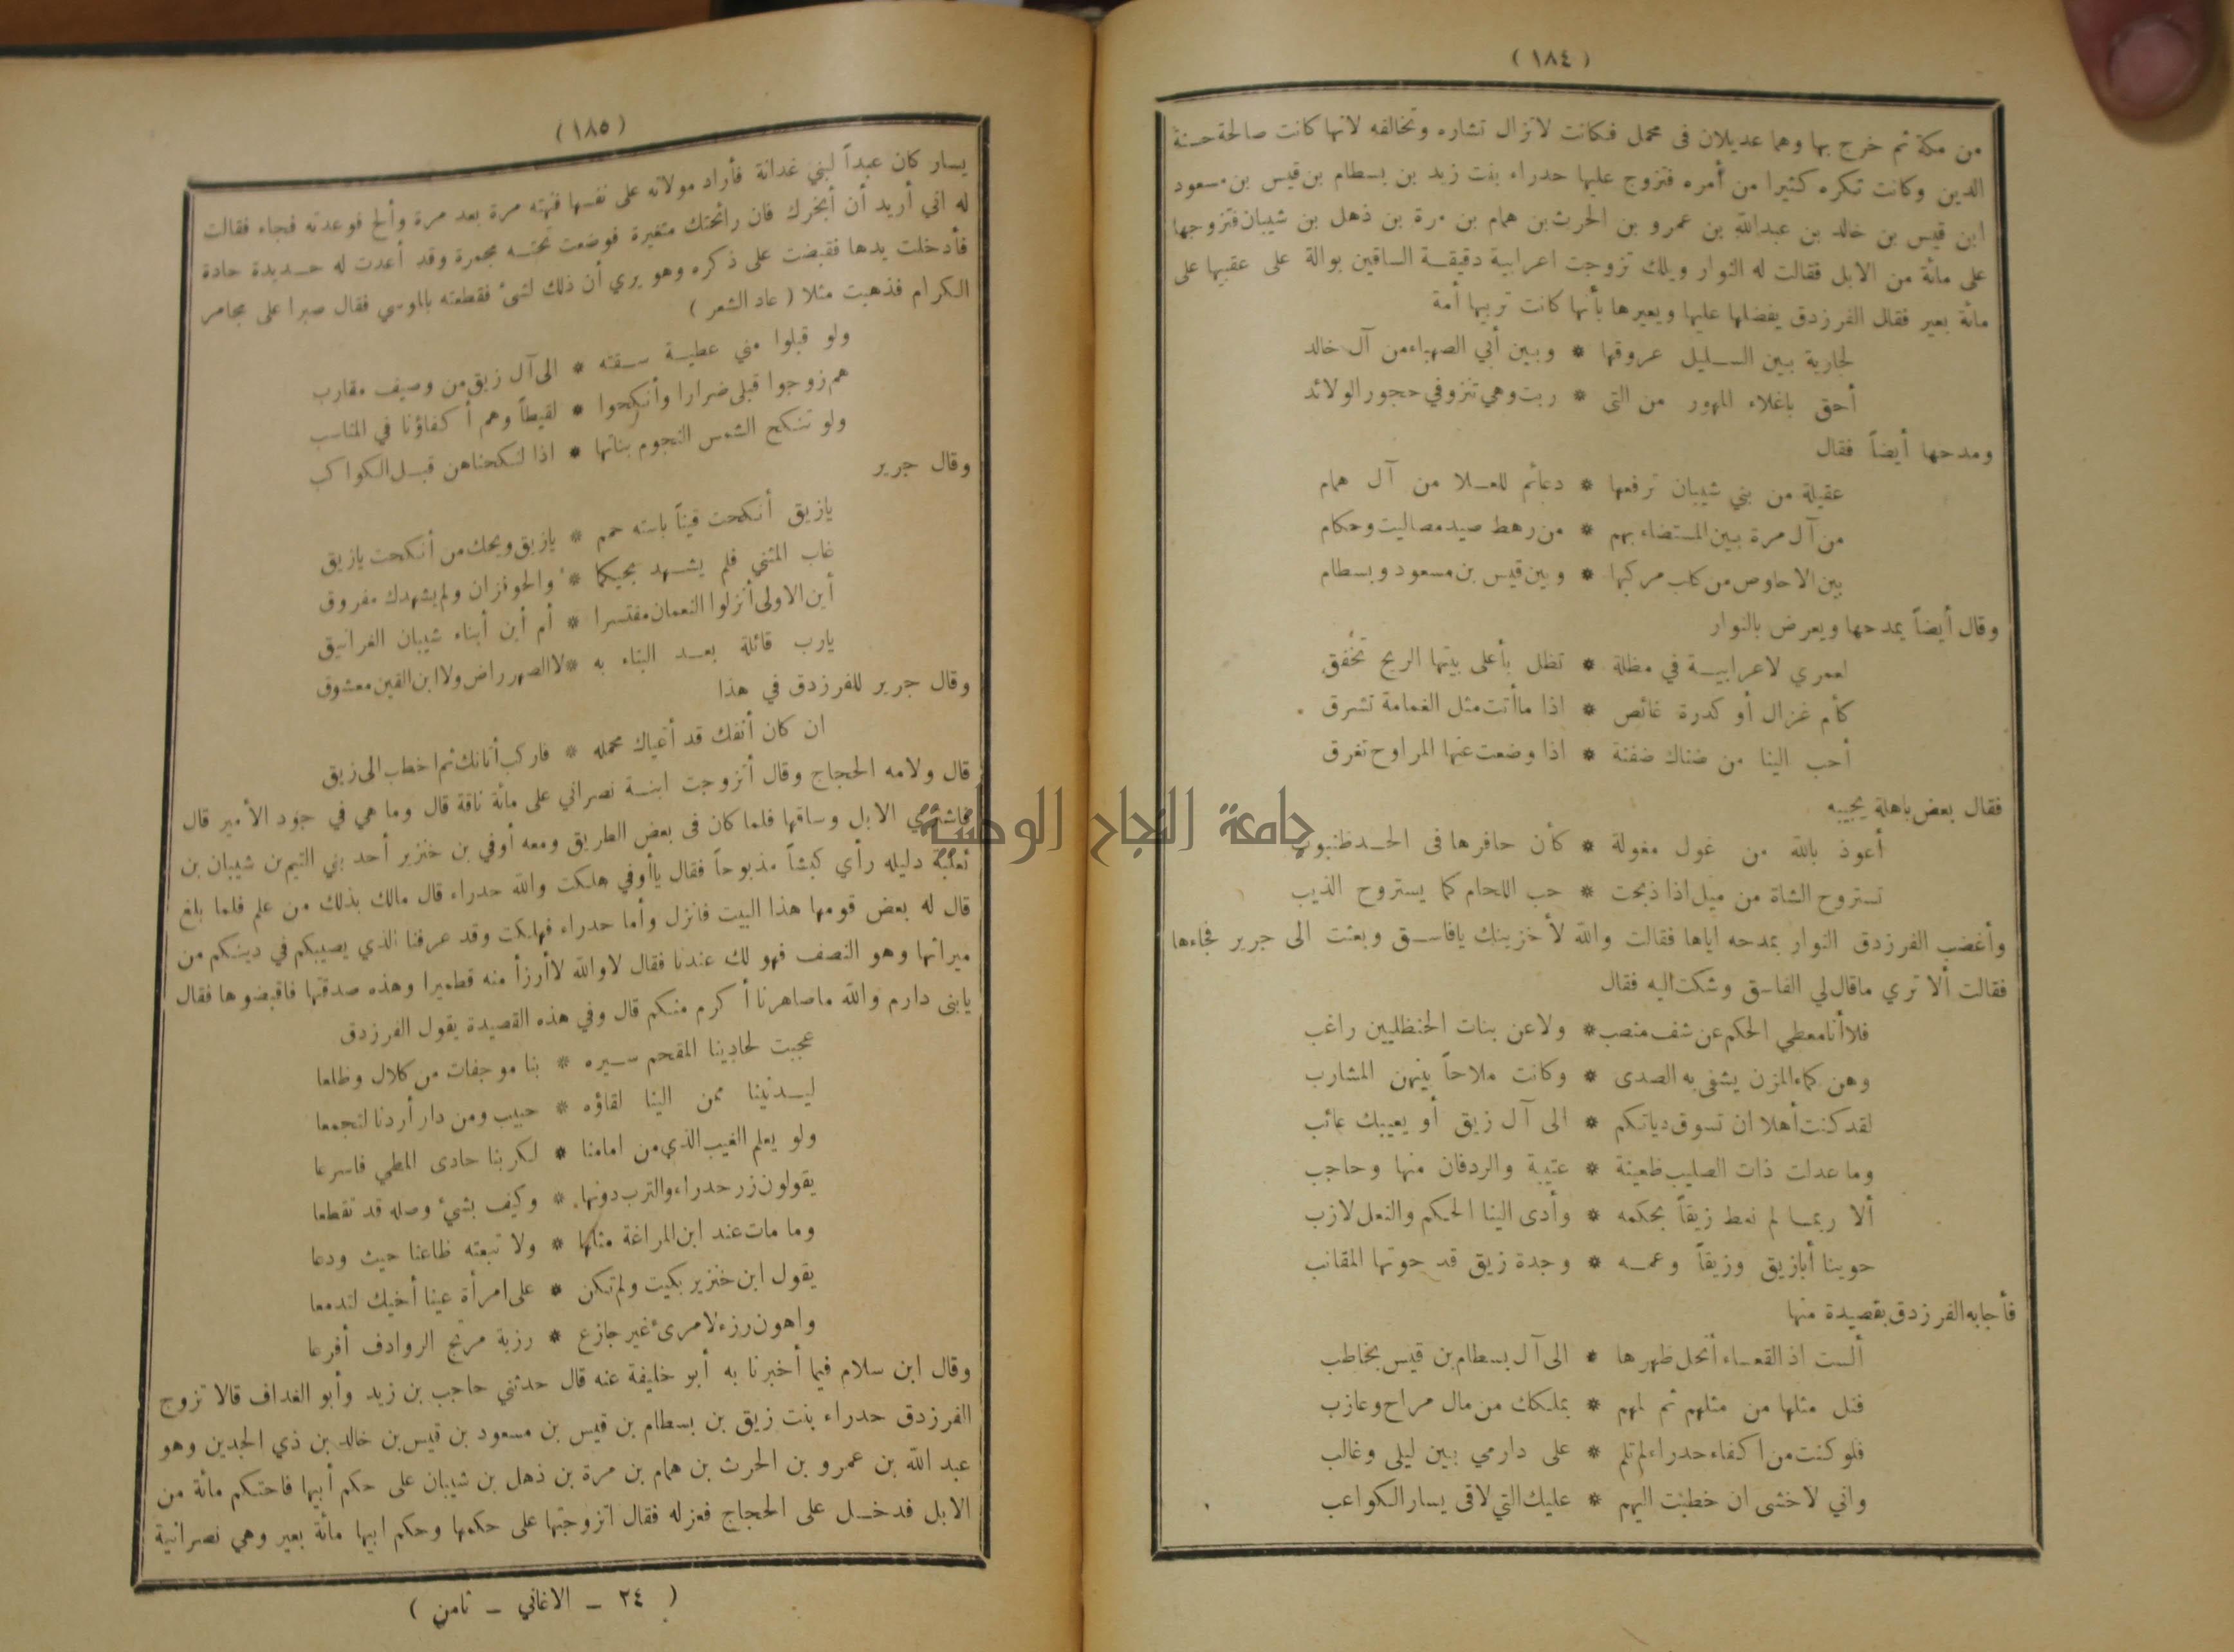 (١٨٤)
من مكة ثم خرج بها وهما عديلان فى محمل فكانت لا تزال تشاره وتخالفه لانها كانت صالحة حسنة
الدين وكانت تكره كثيرا من أمره فتزوج عليها حدراء بنت زيد بن بسطام بن قيس بن مسعود
ابن قيس بن خالد بن عبدالله بن عمرو بن الحرث بن همام بن مرة بن ذهل بن شيبان فتزوجها
على مائة من الابل فقالت له النوار ويلك تزوجت اعرابية دقيقة الساقين بوالة على عقبيها على
مائة بعير فقال الفرزدق يفضلها عليها ويعيرها بأنها كانت تربيها أمة
لجارية بين السليل عروقها * وبين أبي الصهباء من آل خالد
أحق باغلاء المهور من التى * ربت وهي تنزو في حجور الولائد
ومدحها أيضاً فقال
عقيلة من بني شيبان ترفعها * دعائم للعلا من آل همام
من آل مرة بين المستضاء بهم * من رهط صيد مصاليت وحكام
بين الاحاوص من كلب مركبها * وبين قيس بن مسعود وبسطام
وقال أيضاً يمدحها ويعرض بالنوار
لعمري لاعرابية في مظلة * تظل بأعلى بيتها الريح تخفق
كأم غزال أو كدرة غائص * اذا ما أتت مثل الغمامة تشرق
أحب الينا من ضناك ضفنة * اذا وضعت عنها المراوح تغرق
فقال بعض باهلة يجيبه
أعوذ بالله من غول مغولة * كأن حافرها فى الحد ظنبوب
تستروح الشاة من ميل اذا ذبحت * حب اللحام كما يستروح الذيب
وأغضب الفرزدق النوار بمدحه اياها فقالت والله لأخزينك يافاسق وبعثت الى جرير فجاءها
فقالت ألا تري ماقال لي الفاسق وشكت اليه فقال
فلا أنا معطي الحكم عن شف منصب * ولا عن بنات الحنظليين راغب
وهن كماء المزن يشفى به الصدى * وكانت ملاحاً بينهن المشارب
لقد كنت أهلا ان تسوق دياتكم * الى آل زيق أو يعيبك عائب
وما عدلت ذات الصليب ظعينة * عتيبة والردفان منها وحاجب
ألا ربما لم نعط زيقاً بحكمه * وأدى الينا الحكم والنعل لازب
حوينا أبازيق وزيقاً وعمه * وجدة زيق قد حوتها المقانب
فأجابه الفرزدق بقصيدة منها
ألست اذ القعساء أنحل ظهرها * الى آل بسطام بن قيس بخاطب
فنل مثلها من مثلهم ثم لمهم * بملكك من مال مراح وعازب
فلو كنت من اكفاء حدراء لم تلم * على دارمي بين ليلى وغالب
واني لاخشى ان خطبت اليهم * عليك التي لاقى يسار الكواعب
(١٨٥)
يسار كان عبداً لبني غدانة فأراد مولاته على نفسها فنهته مرة بعد مرة وألح فوعدته فجاء فقالت
له اني أريد أن أبخرك فان رائحتك متغيرة فوضعت تحته مجمرة وقد أعدت له حديدة حادة
فأدخلت يدها فقبضت على ذكره وهو يري أن ذلك لشئ فقطعته بالموسي فقال صبرا على مجامر
الكرام فذهبت مثلا (عاد الشعر)
ولو قبلوا مني عطية سقته * الى آل زيق من وصيف مقارب
هم زوجوا قبلى ضرارا وأنكحوا * لقيطاً وهم أكفاؤنا في المناسب
ولو تنكح الشمس النجوم بناتها * اذا لنكحناهن قبل الكواكب
وقال جرير
يازيق أنكحت قيناً باسته حمم * يازيق ويحك من أنكحت يازيق
غاب المثني فلم يشهد بجيكما * والحوفزان ولم يشهدك مفروق
أين الاولى أنزلوا النعمان مقتسرا * أم أين أبناء شيبان الغرانيق
يارب قائلة بعد البناء به * لا الصهر راض ولا ابن القين معشوق
وقال جرير للفرزدق في هذا
ان كان أنفك قد أعياك محمله * فاركب أتانك ثم اخطب الى زيق
قال ولامه الحجاج وقال أتزوجت ابنة نصراني على مائة ناقة قال وما هي في جود الأمير قال
فاشتري الابل وساقها فلما كان فى بعض الطريق ومعه أوفي بن خنزير أحد بني التيم بن شيبان بن
ثعلبة دليله رأي كبشاً مذبوحاً فقال يا أوفي هلكت والله حدراء قال مالك بذلك من علم فلما بلغ
قال له بعض قومها هذا البيت فانزل وأما حدراء فهلكت وقد عرفنا الذي يصيبكم في دينكم من
ميراثها وهو النصف فهو لك عندنا فقال لا والله لا أرزأ منه قطميرا وهذه صدقتها فاقبضوها فقال
يابنى دارم والله ماصاهرنا أكرم منكم قال وفي هذه القصيدة يقول الفرزدق
عجبت لحادينا المقحم سيره * بنا موجفات من كلال وظلعا
ليدنينا ممن الينا لقاؤه * حبيب ومن دار أردنا لتجمعا
ولو يعلم الغيب الذي من امامنا * لكر بنا حادى المطي فاسرعا
يقولون زر حدراء والترب دونها * وكيف بشيء وصله قد تقطعا
وما مات عند ابن المراغة مثلها * ولا تبعته ظاعنا حيث ودعا
يقول ابن خنزير بكيت ولم تكن * على امرأة عينا أخيك لتدمعا
واهون رزء لامرئ غير جازع * رزية مرتج الروادف أفرعا
وقال ابن سلام فيما أخبرنا به أبو خليفة عنه قال حدثني حاجب بن زيد وأبو الغداف قالا تزوج
الفرزدق حدراء بنت زيق بن بسطام بن قيس بن مسعود بن قيس بن خالد بن ذي الجدين وهو
عبد الله بن عمرو بن الحرث بن همام بن مرة بن ذهل بن شيبان على حكم أبيها فاحتكم مائة من
الابل فدخل على الحجاج فعزله فقال اتزوجتها على حكمها وحكم ابيها مائة بعير وهي نصرانية
( ٢٤ – الاغاني – ثامن )
جامعة النجاح الوطنية